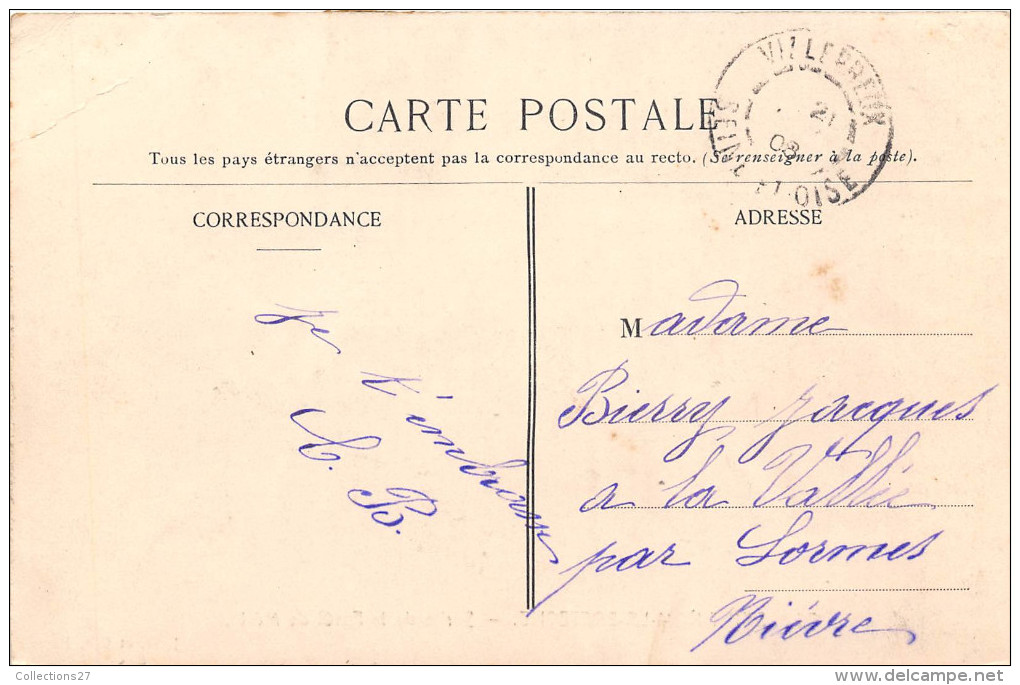 CARTE POSTALE
Tous les pays étrangers n'acceptent pas la correspondance au recto. (Se renseigner à la poste).
VILLEPREUX
21
08
SEINE ET OISE
CORRESPONDANCE
Je
t'embrasse
B.
ADRESSE
Madame
Bierry Jacques
a la Vallée
par Lormes
Nièvre
Collections27
www.delcampe.net